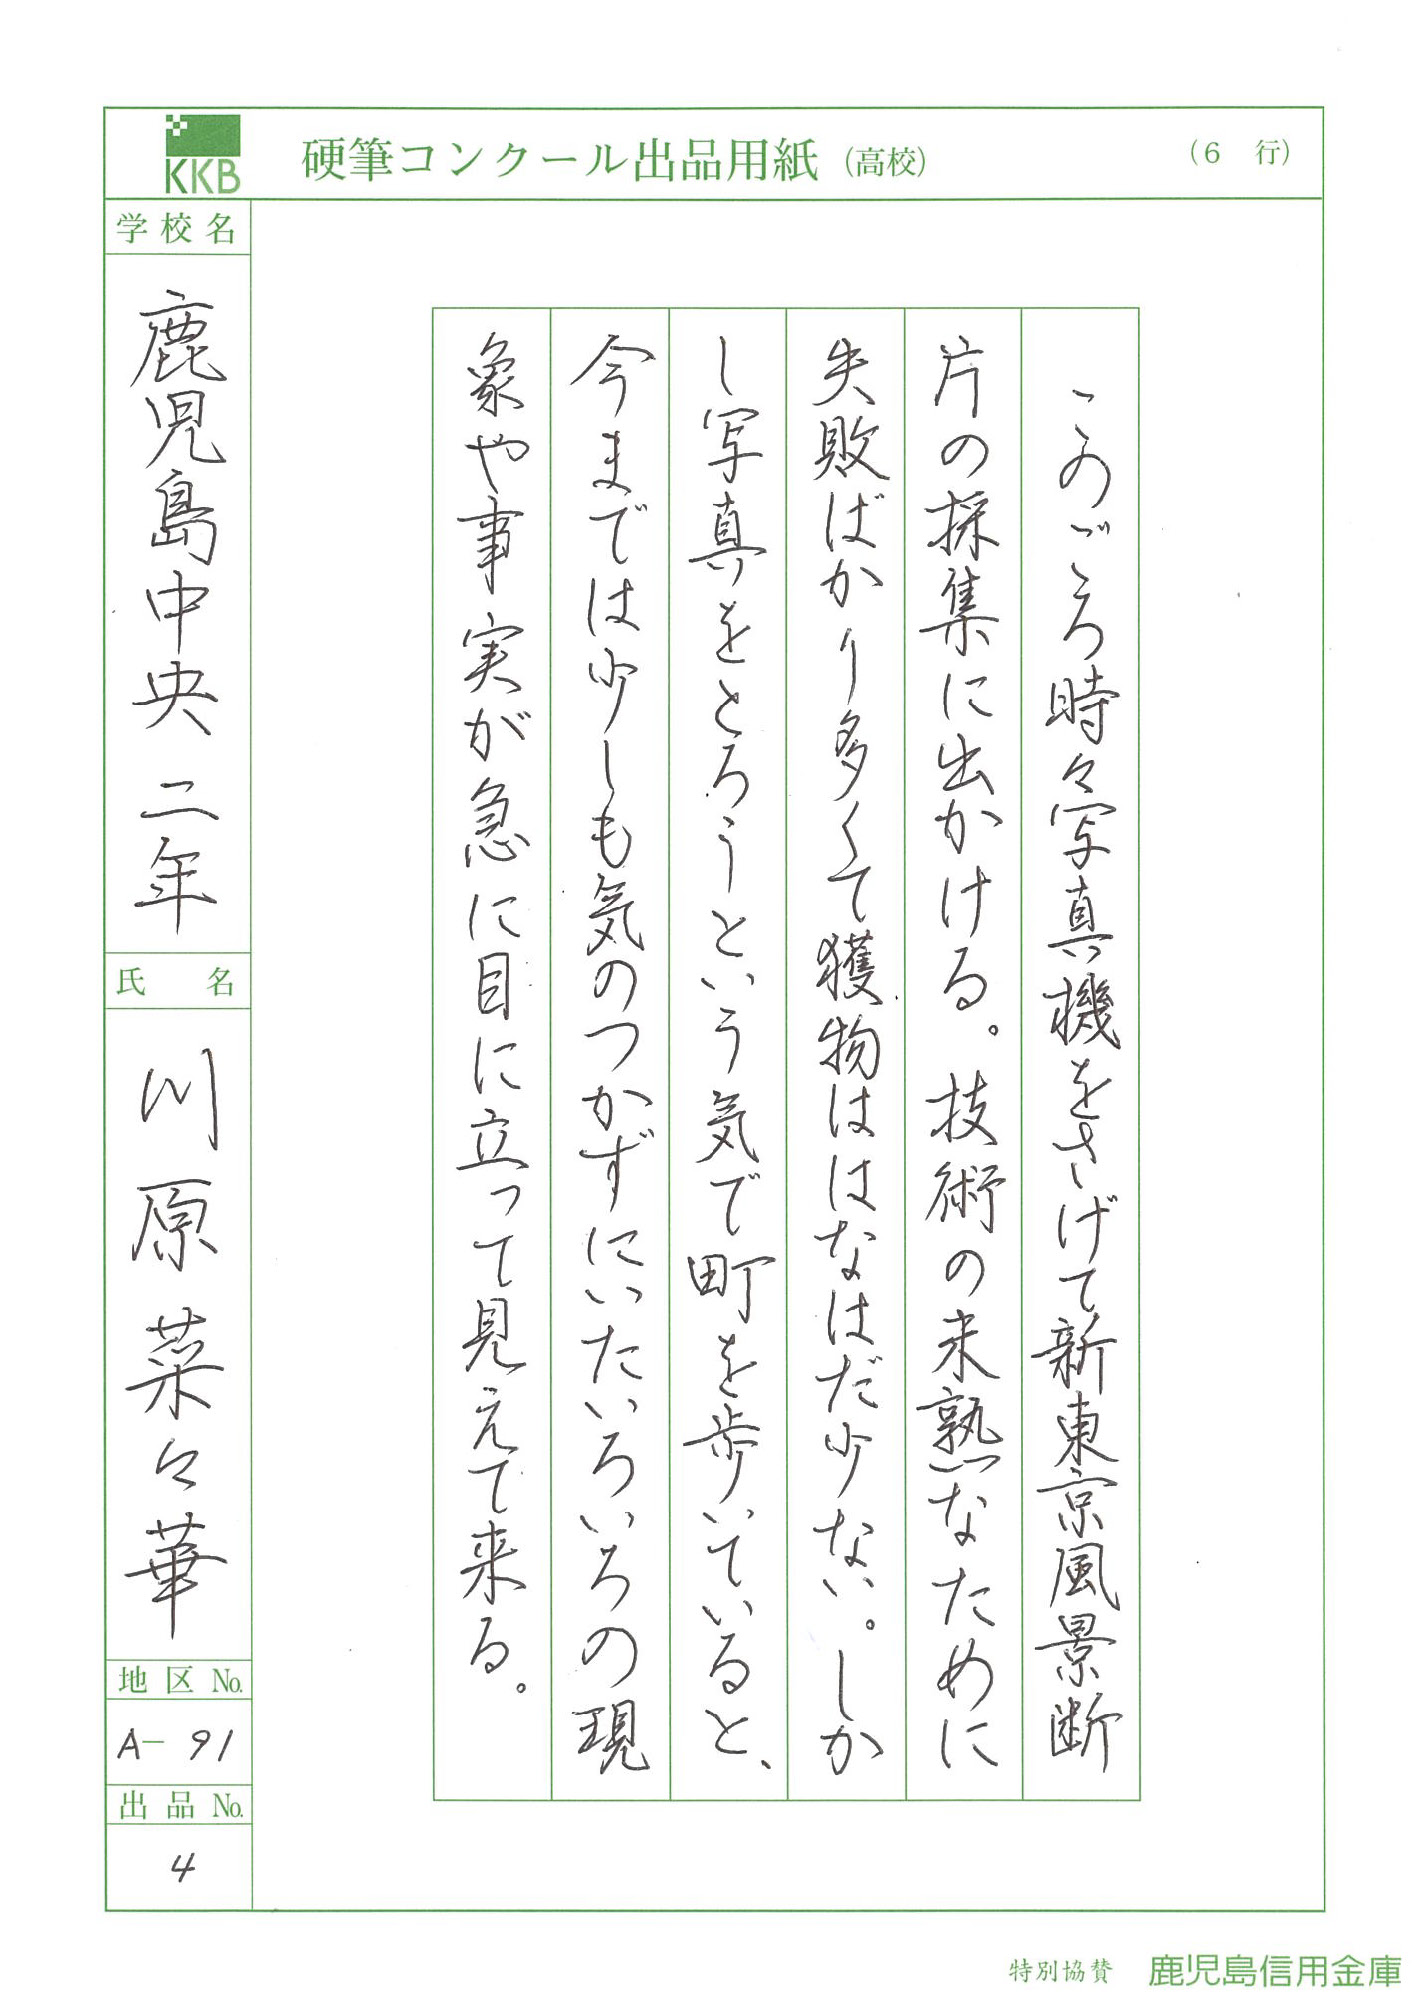 KKB
硬筆コンクール出品用紙（高校）
（6　行）
このごろ時々写真機をさげて新東京風景断
片の採集に出かける。技術の未熟なために
失敗ばかり多くて獲物ははなはだ少ない。しか
し写真をとろうという気で町を歩いていると、
今までは少しも気のつかずにいたいろいろの現
象や事実が急に目に立って見えて来る。
学校名
鹿児島中央　二年
氏　名
川原菜々華
地区 No.
A－91
出品 No.
4
特別協賛　鹿児島信用金庫